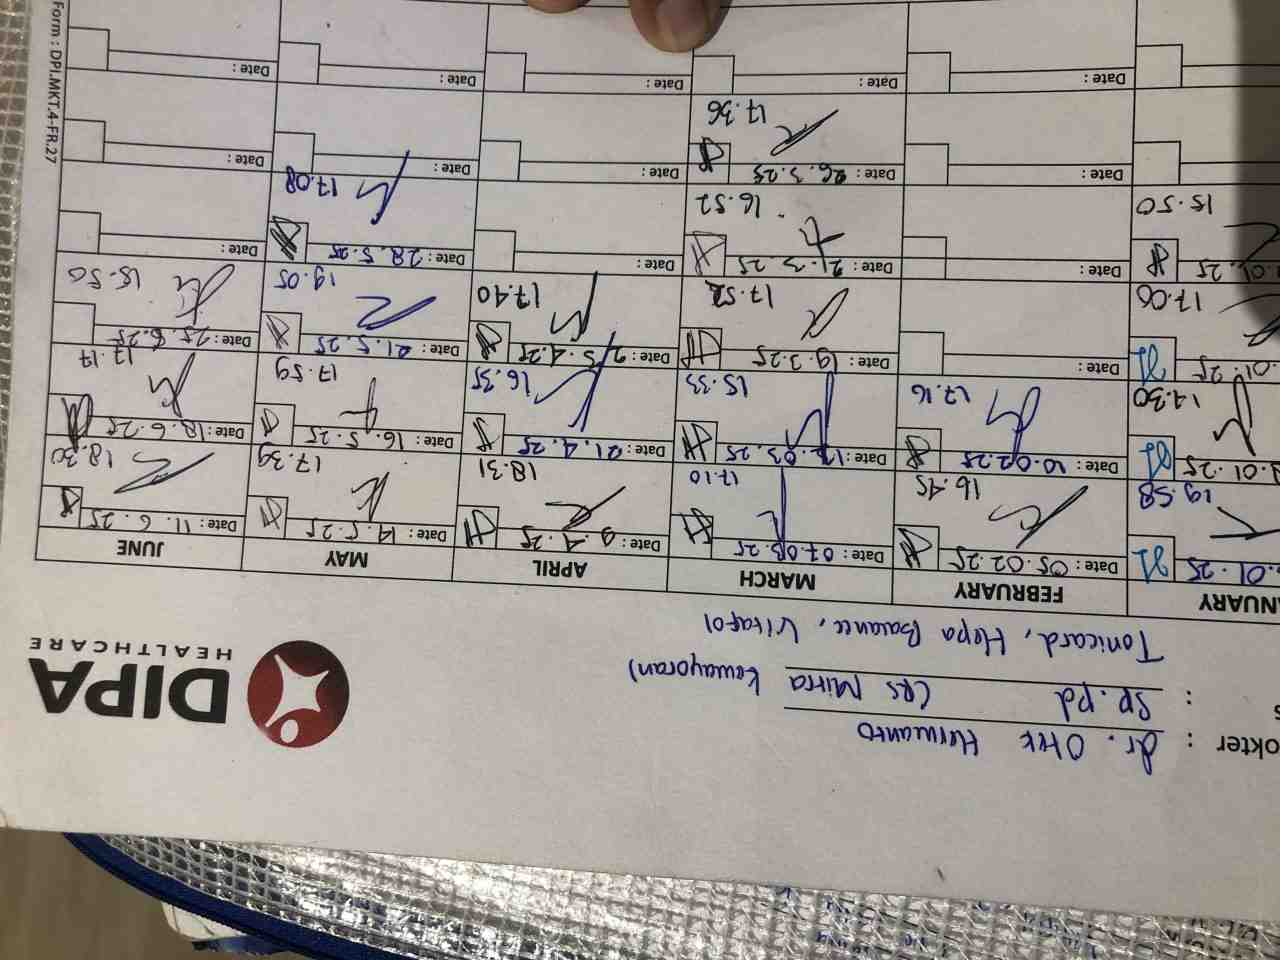 DIPA
HEALTHCARE
okter : dr. Otek Hermanto
s : Sp. pd (RS Mitra Kemayoran)
Tonicard, Hepa Balance, Vitafol
NUARY FEBRUARY MARCH APRIL MAY JUNE
.01.25 Date : 05.02.25 Date : 07.03.25 Date : 9.4.25 Date : 14.5.25 Date : 11.6.25
19.58 16.45 17.10 18.31 17.39 18.30
.01.25 Date : 10.02.25 Date : 12.03.25 Date : 21.4.25 Date : 16.5.25 Date : 18.6.25
14.30 17.16 15.33 16.35 17.59 17.17
.01.25 Date : Date : 19.3.25 Date : 25.4.25 Date : 21.5.25 Date : 25.6.25
17.00 17.52 17.40 19.05 15.50
.01.25 Date : Date : 21.3.25 Date : Date : 28.5.25 Date :
15.50 16.52 17.08
Date : Date : 26.3.25 Date : Date : Date :
17.36
Date : Date : Date : Date : Date :
Form : DPI.MKT.4-FR.27